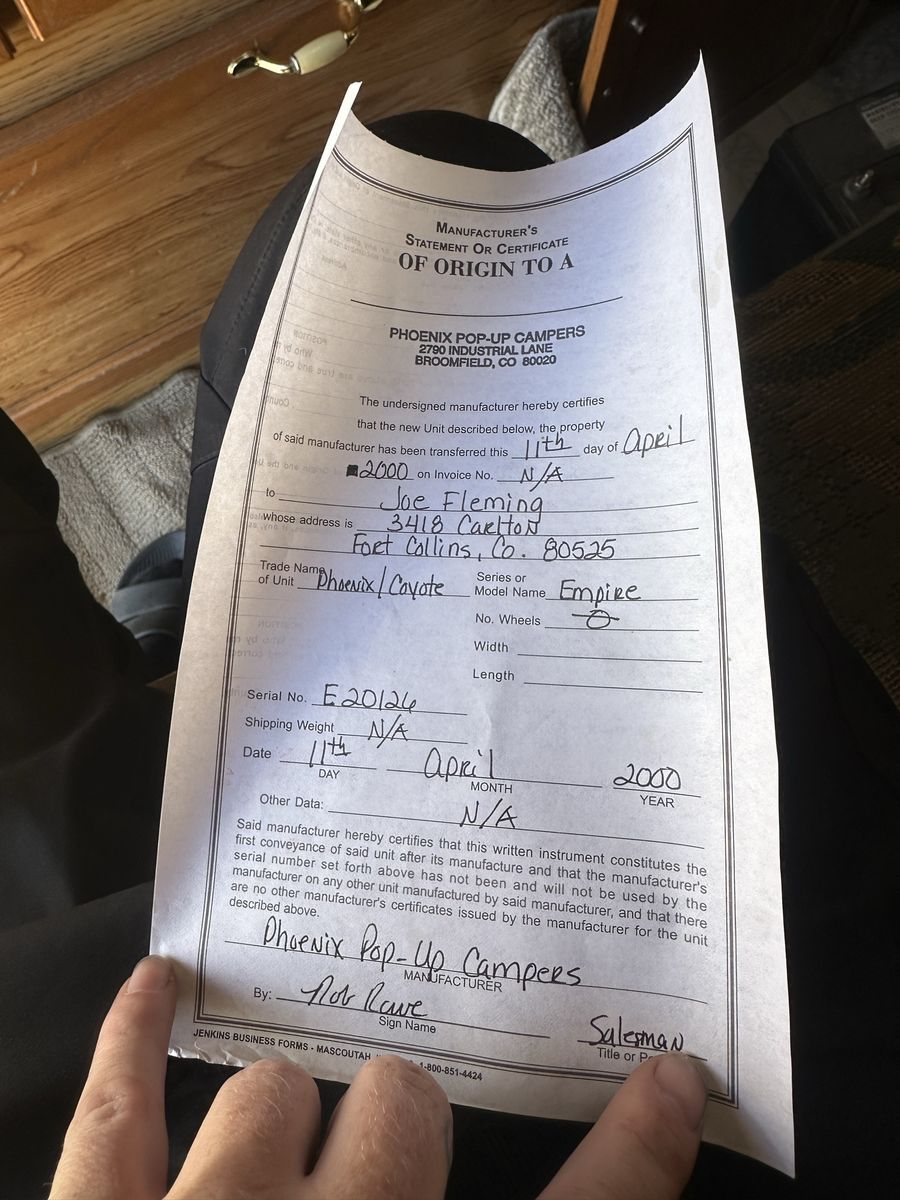 MANUFACTURER'S
STATEMENT OR CERTIFICATE
OF ORIGIN TO A
PHOENIX POP-UP CAMPERS
2790 INDUSTRIAL LANE
BROOMFIELD, CO 80020
The undersigned manufacturer hereby certifies
that the new Unit described below, the property
of said manufacturer has been transferred this 11th day of April
2000 on Invoice No. N/A
to Joe Fleming
whose address is 3418 Carlton
Fort Collins, Co. 80525
Trade Name of Unit Phoenix/Coyote
Series or Model Name Empire
No. Wheels 0
Width
Length
Serial No. E20126
Shipping Weight N/A
Date 11th April 2000
DAY MONTH YEAR
Other Data: N/A
Said manufacturer hereby certifies that this written instrument constitutes the
first conveyance of said unit after its manufacture and that the manufacturer's
serial number set forth above has not been and will not be used by the
manufacturer on any other unit manufactured by said manufacturer, and that there
are no other manufacturer's certificates issued by the manufacturer for the unit
described above.
Phoenix Pop-Up Campers
MANUFACTURER
By: Rob Rowe Salesman
Sign Name Title or
JENKINS BUSINESS FORMS - MASCOUTAH 1-800-851-4424